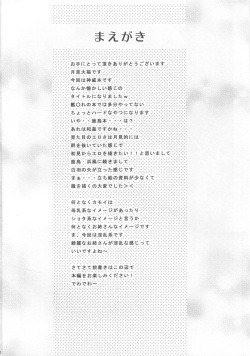 まえがき
お手にとって頂きありがとうございます
月見大福です
今回は神威本です
なんか懐かしい感じの
タイトルになりましたｗ
艦○れの本では多分やってない
ちょっとハードなやつになります
いや・・鹿島本・・・は？
あれは和姦ですかね・・・
見た目のエロさは月見的には
群を抜いていた感じで
初見からエロを描きたい！！と思いまして
鹿島　浜風に続きまして
白羽の矢が立った感じです
まぁ・・・立ち絵の資料が少なくて
描くの大変でした＞＜
何となくカモイは
母乳系なイメージがあったり
ショタ系なイメージと言うか
何となくお姉さんなイメージです
ま、今回は淫乱系です
綺麗なお姉さんが淫乱な感じって
いいですよね～
さてさて前書きはこの辺で
本編をお楽しみください！
でわでわ～